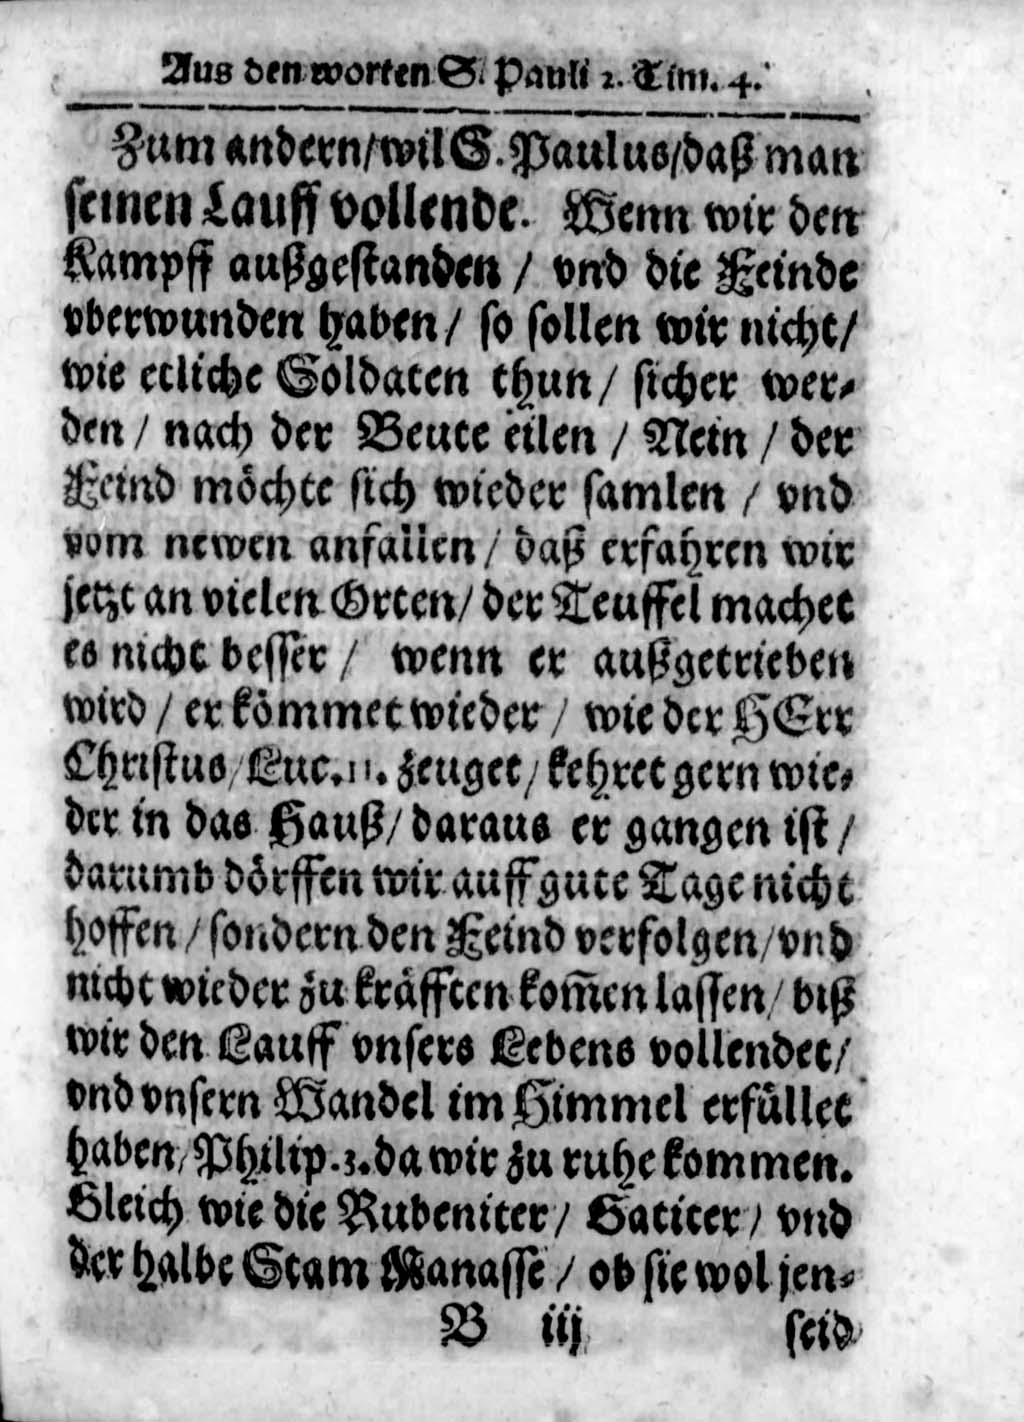 Aus den worten S. Pauli 2. Tim. 4.
Zum andern/wil S. Paulus/daß man
seinen Lauff vollende. Wenn wir den
Kampff außgestanden / vnd die Feinde
vberwunden haben / so sollen wir nicht/
wie etliche Soldaten thun / sicher wer-
den / nach der Beute eilen / Nein / der
Feind möchte sich wieder samlen / vnd
vom newen anfallen / daß erfahren wir
jetzt an vielen Orten/ der Teuffel machet
es nicht besser / wenn er außgetrieben
wird / er kömmet wieder / wie der HErr
Christus/Luc. 11. zeuget / kehret gern wie-
der in das Hauß/ daraus er gangen ist /
darumb dörffen wir auff gute Tage nicht
hoffen / sondern den Feind verfolgen/vnd
nicht wieder zu kräfften kom̃en lassen/ biß
wir den Lauff vnsers Lebens vollendet/
vnd vnsern Wandel im Himmel erfüllet
haben/Philip. 3. da wir zu ruhe kommen.
Gleich wie die Rubeniter/ Gatiter / vnd
der halbe Stam Manasse / ob sie wol jen-
B iij
seid